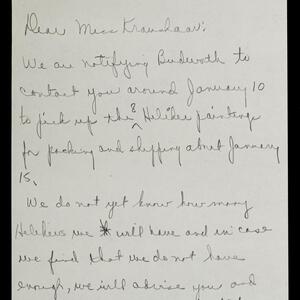 Dear Miss Kraushaar:
We are notifying Budworth to
contact you around January 10
to pick up the 8 Heliker paintings
for packing and shipping about January
15.
We do not yet know how many
Helikers we will have and in case
we find that we do not have
enough, we will advise you and